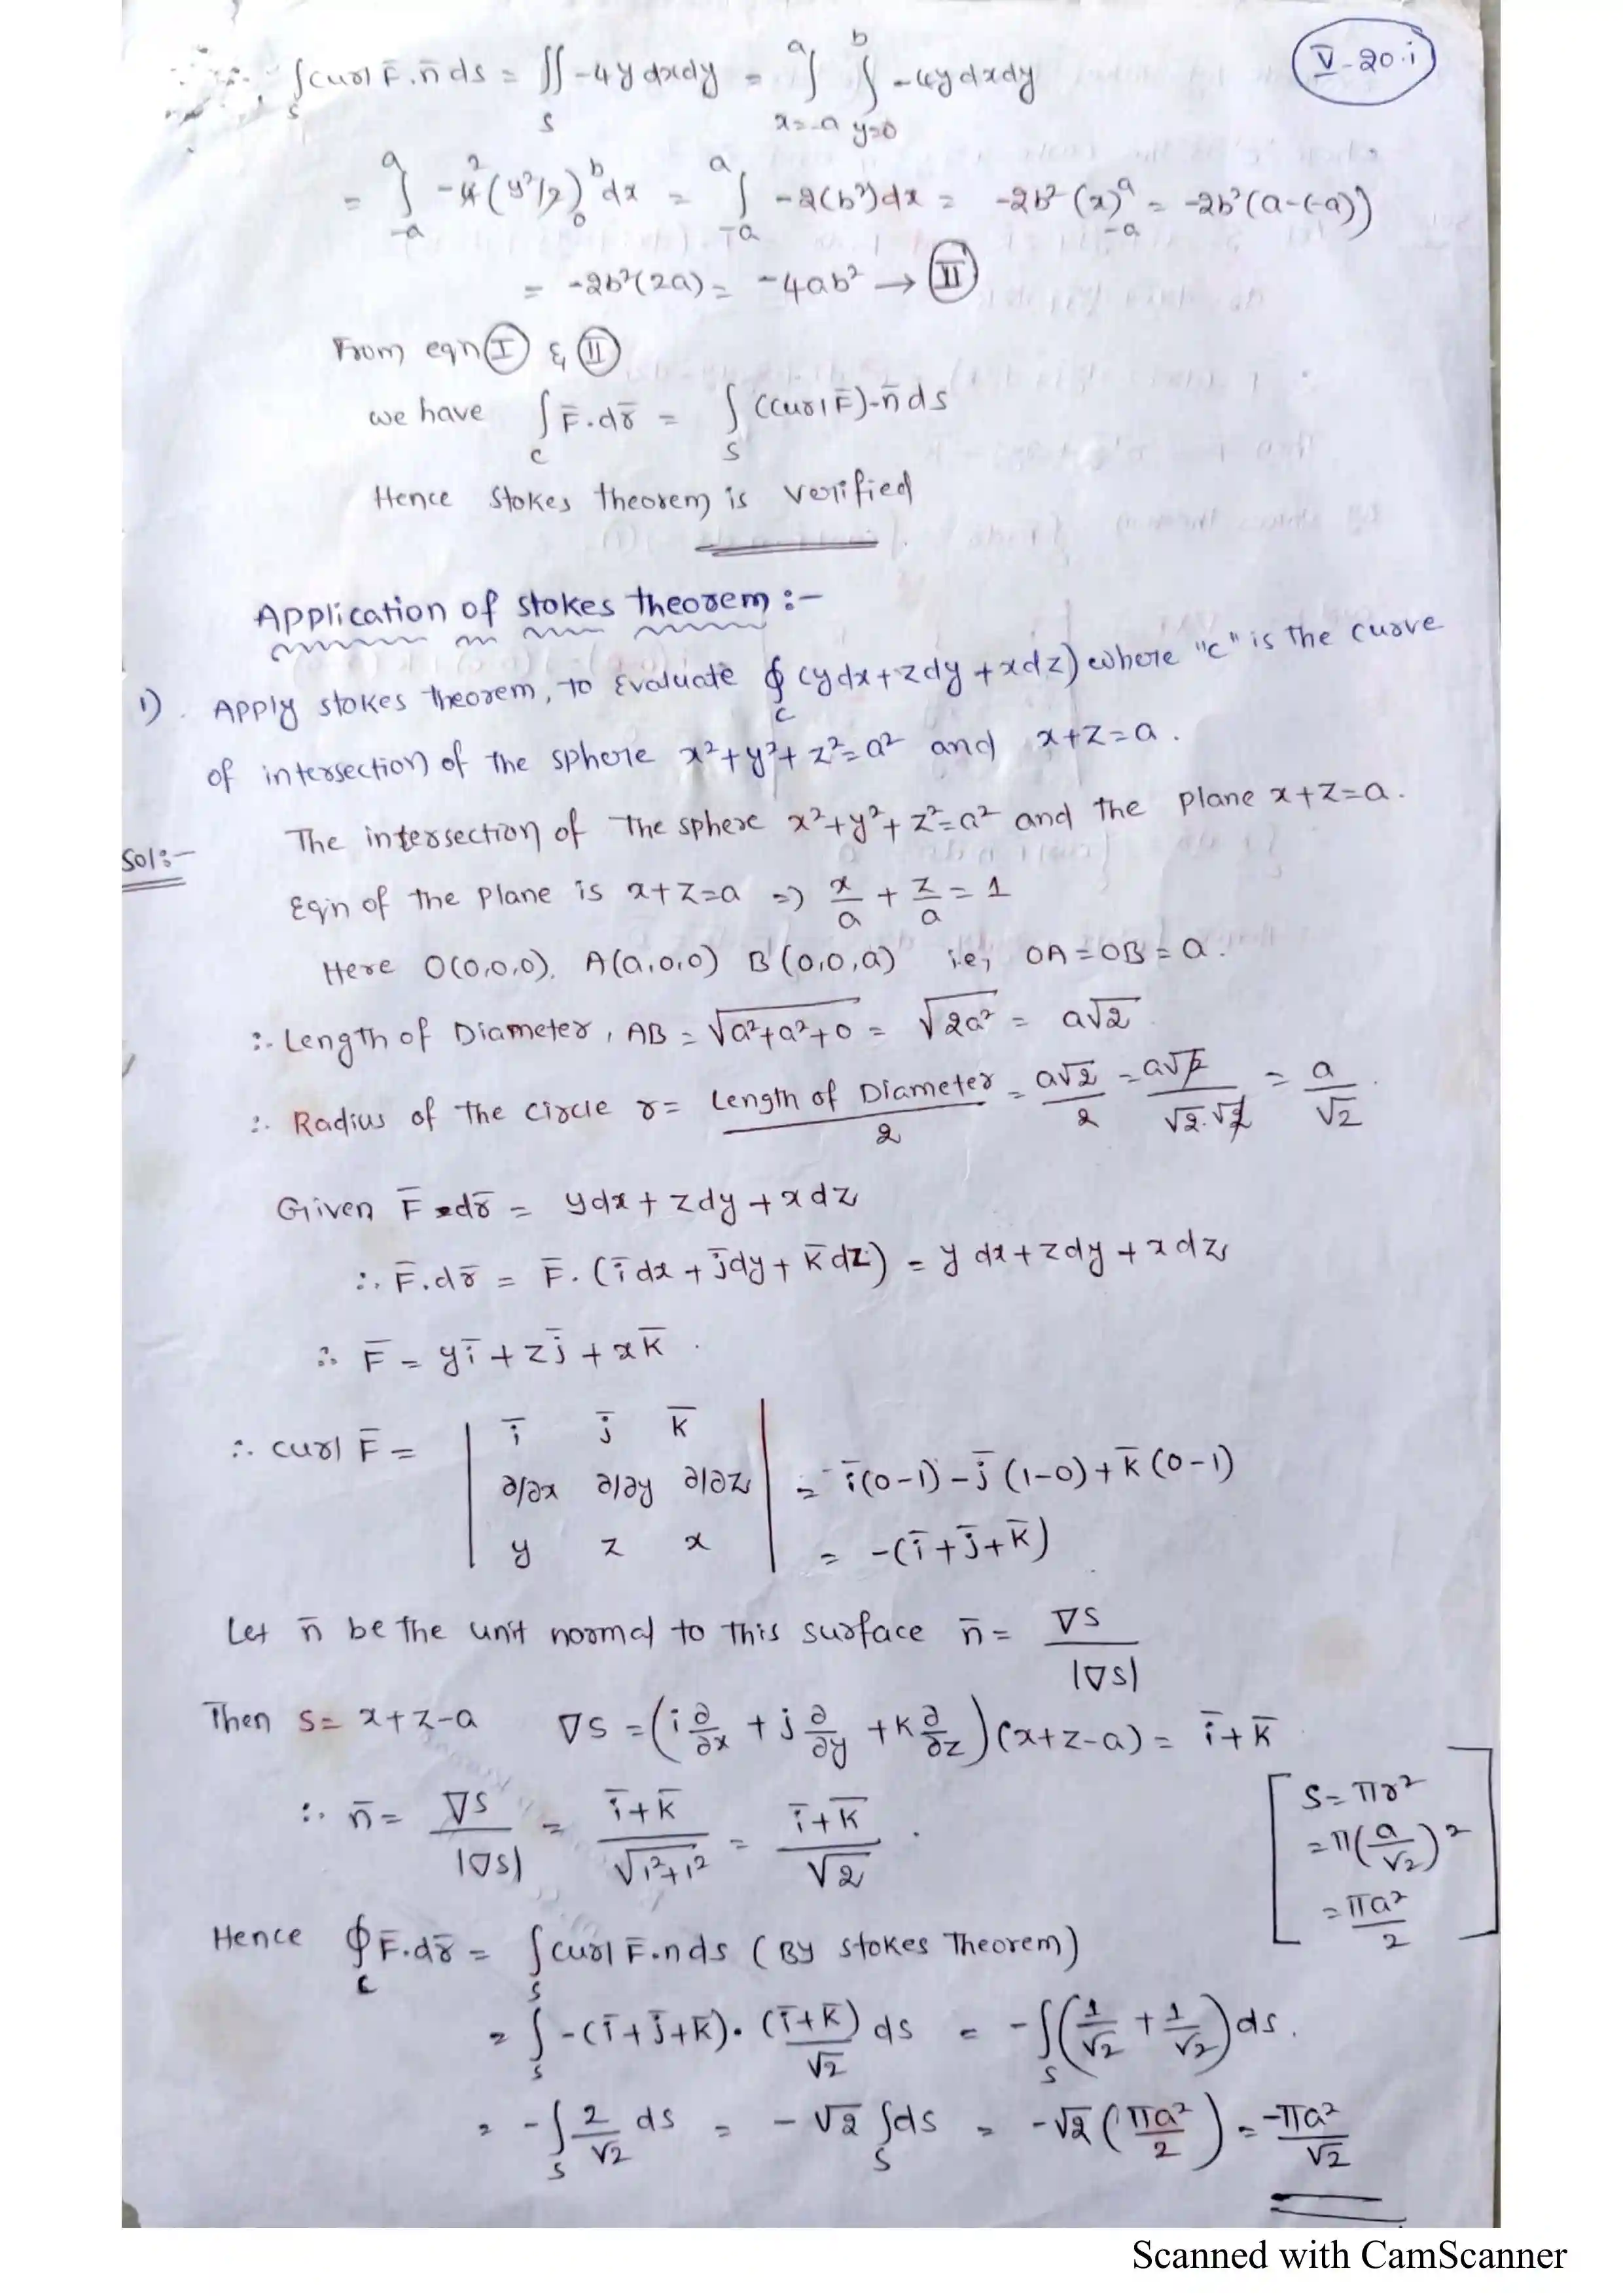 V-20.i
∫_S curl F̄.n̄ ds = ∬_S -4y dxdy = ∫_{x=-a}^{a} ∫_{y=0}^{b} -4y dxdy
= ∫_{-a}^{a} -4̸² (y²/2̸)_0^b dx = ∫_{-a}^{a} -2(b²)dx = -2b² (x)_{-a}^{a} = -2b²(a-(-a))
= -2b²(2a) = -4ab² → Ⅱ
From eqn Ⅰ & Ⅱ
we have ∫_C F̄.dr̄ = ∫_S (curl F̄)-n̄ ds
Hence Stokes theorem is verified
Application of stokes theorem :-
1). Apply stokes theorem, to Evaluate ∮_C (ydx+zdy+xdz) where "c" is the curve
of intersection of the sphere x²+y²+z²=a² and x+z=a.
Sol:- The intersection of The sphere x²+y²+z²=a² and the plane x+z=a.
Eqn of the plane is x+z=a => x/a + z/a = 1
Here O(0,0,0). A(a,0,0) B(0,0,a) i.e; OA=OB=a.
∴ Length of Diameter, AB = √(a²+a²+0) = √(2a²) = a√2
∴ Radius of the circle r = Length of Diameter/2 = a√2/2 = a√2̸/√2.√2̸ = a/√2.
Given F̄.dr̄ = ydx+zdy+xdz
∴ F̄.dr̄ = F̄.(īdx+j̄dy+k̄dz) = y dx+zdy+xdz
∴ F̄ = yī+zj̄+xk̄.
∴ curl F̄ = | ī j̄ k̄
∂/∂x ∂/∂y ∂/∂z | = ī(0-1)-j̄(1-0)+k̄(0-1)
y z x | = -(ī+j̄+k̄)
Let n̄ be the unit normal to this surface n̄ = ∇S/|∇S|
Then S= x+z-a ∇S = (i ∂/∂x + j ∂/∂y + k ∂/∂z)(x+z-a) = ī+k̄
∴ n̄ = ∇S/|∇S| = ī+k̄/√(1²+1²) = ī+k̄/√2.
[S=πr²
=π(a/√2)²
=πa²/2]
Hence ∮_C F̄.dr̄ = ∫_S curl F̄.n ds (By stokes Theorem)
= ∫_S -(ī+j̄+k̄).(ī+k̄)/√2 ds = -∫_S (1/√2 + 1/√2) ds.
= -∫_S 2/√2 ds = -√2 ∫_S ds = -√2 (πa²/2) = -πa²/√2
Scanned with CamScanner